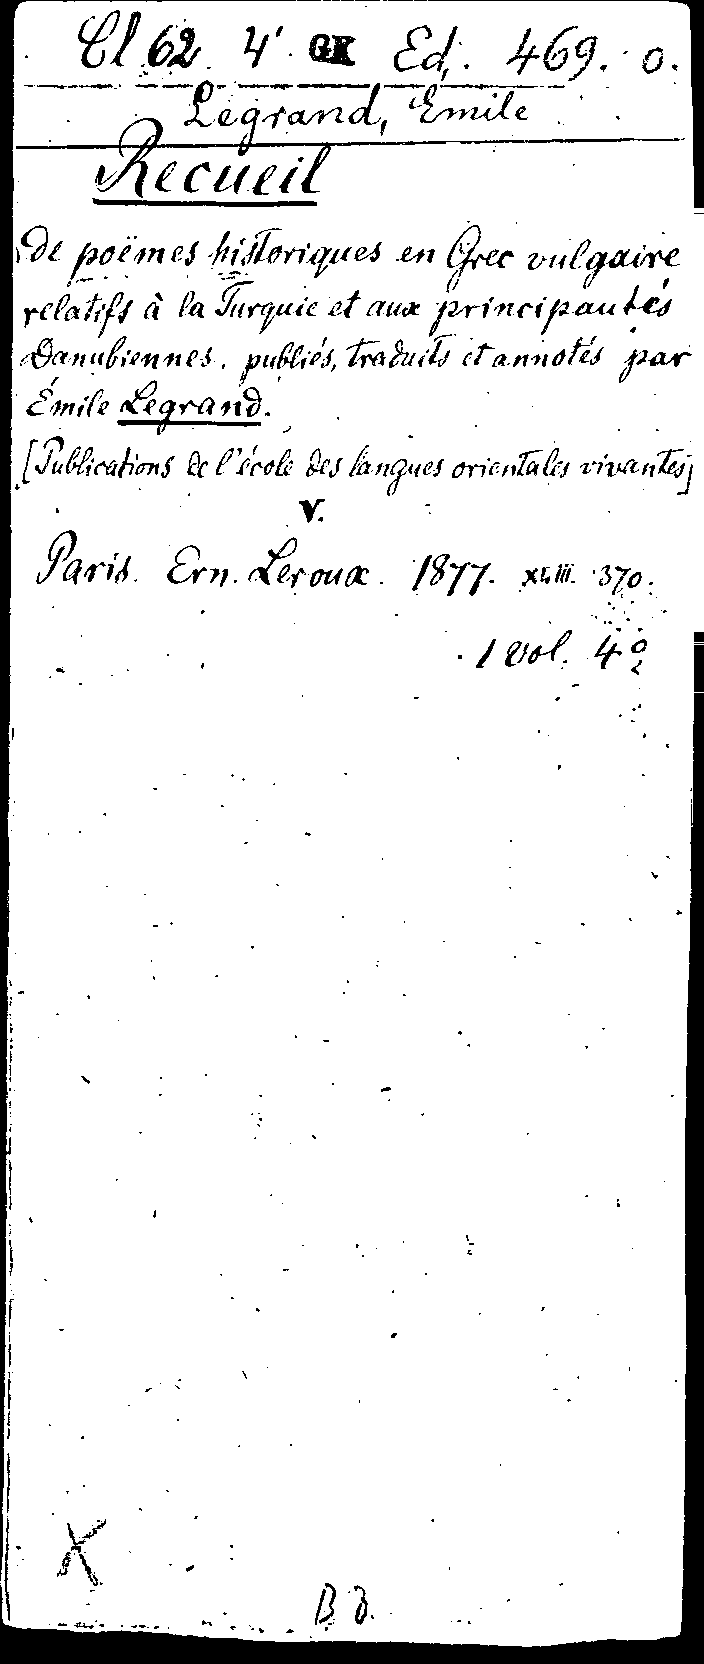 Cl 62 4' GK Ed. 469. o.
Legrand, Emile
Recueil
de poëmes historiques en Grec vulgaire
relatifs à la Turquie et aux principautés
Danubiennes. publiés, traduits et annotés par
Émile Legrand.
[Publications de l'école des langues orientales vivantes]
V.
Paris. Ern. Leroux. 1877. XLIII. 370.
1 vol. 4º
X
B d.